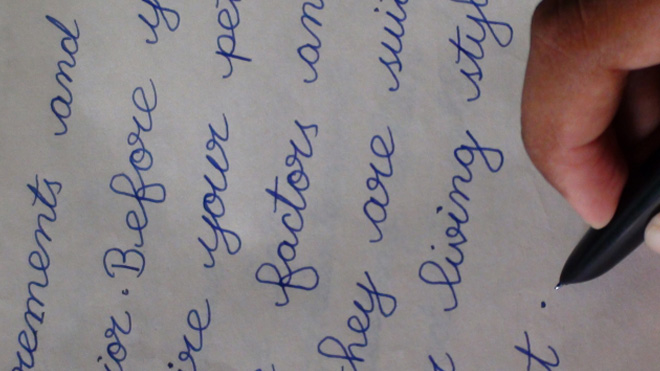 rements and
ior. Before y
ire your pe
factors an
hey are sui
living styl
t.